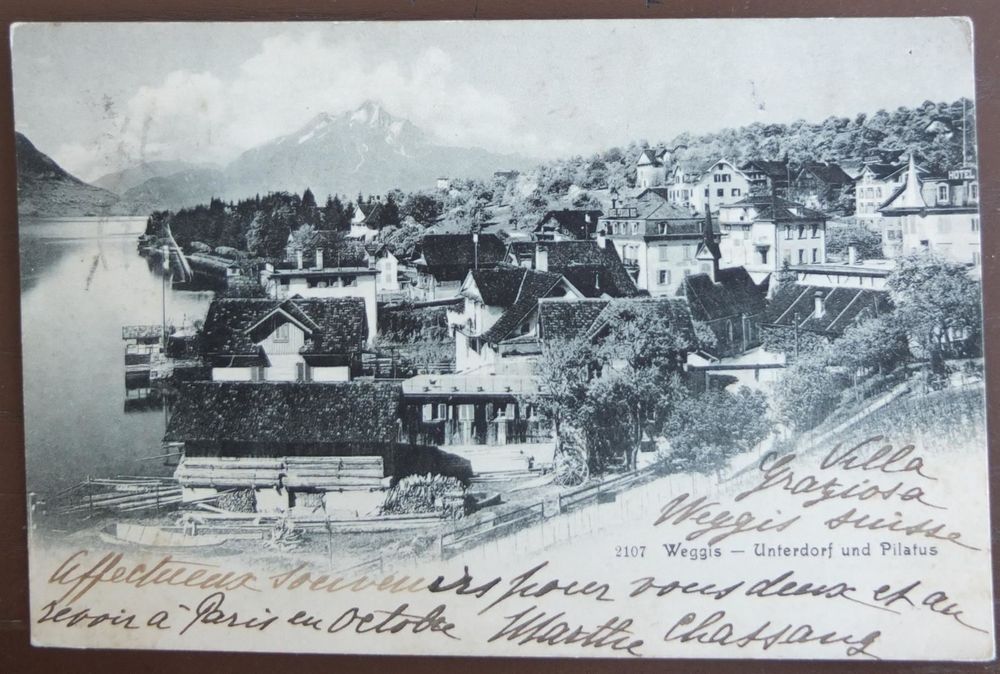 HOTEL
Villa
Graziosa
Weggis suisse
2107 Weggis — Unterdorf und Pilatus
Affectueux souvenirs pour vous deux et au
revoir à Paris en Octobre Marthe Chassang